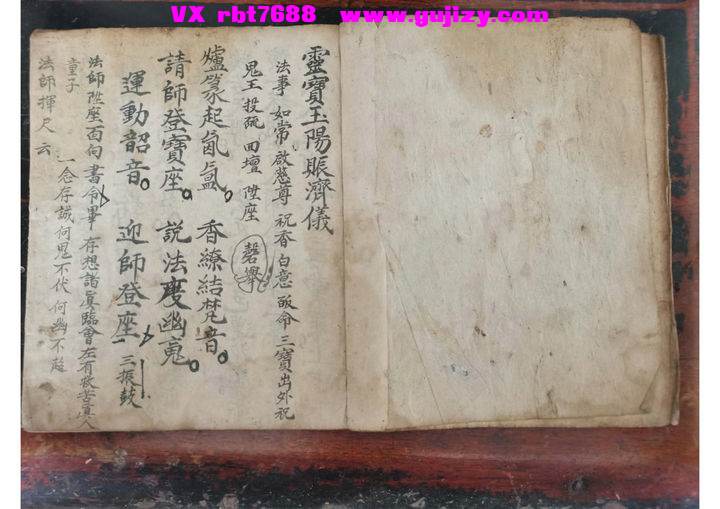 VX rbt7688 www.gujizy.com
靈寶玉陽賑濟儀
法事 如常 啟慈尊 祝香 白意 皈命 三寶 出外祝
鬼王 投疏 回壇 陞座 磬舉
爐篆起氤氳 香繚結梵音
請師登寶座 說法度幽䰟
運動韶音 迎師登座 三振鼓
法師陞座面向 書令畢 存想諸真臨會 左有救苦真人
童子
法師揮尺云 一念存誠何鬼不伏 何幽不超